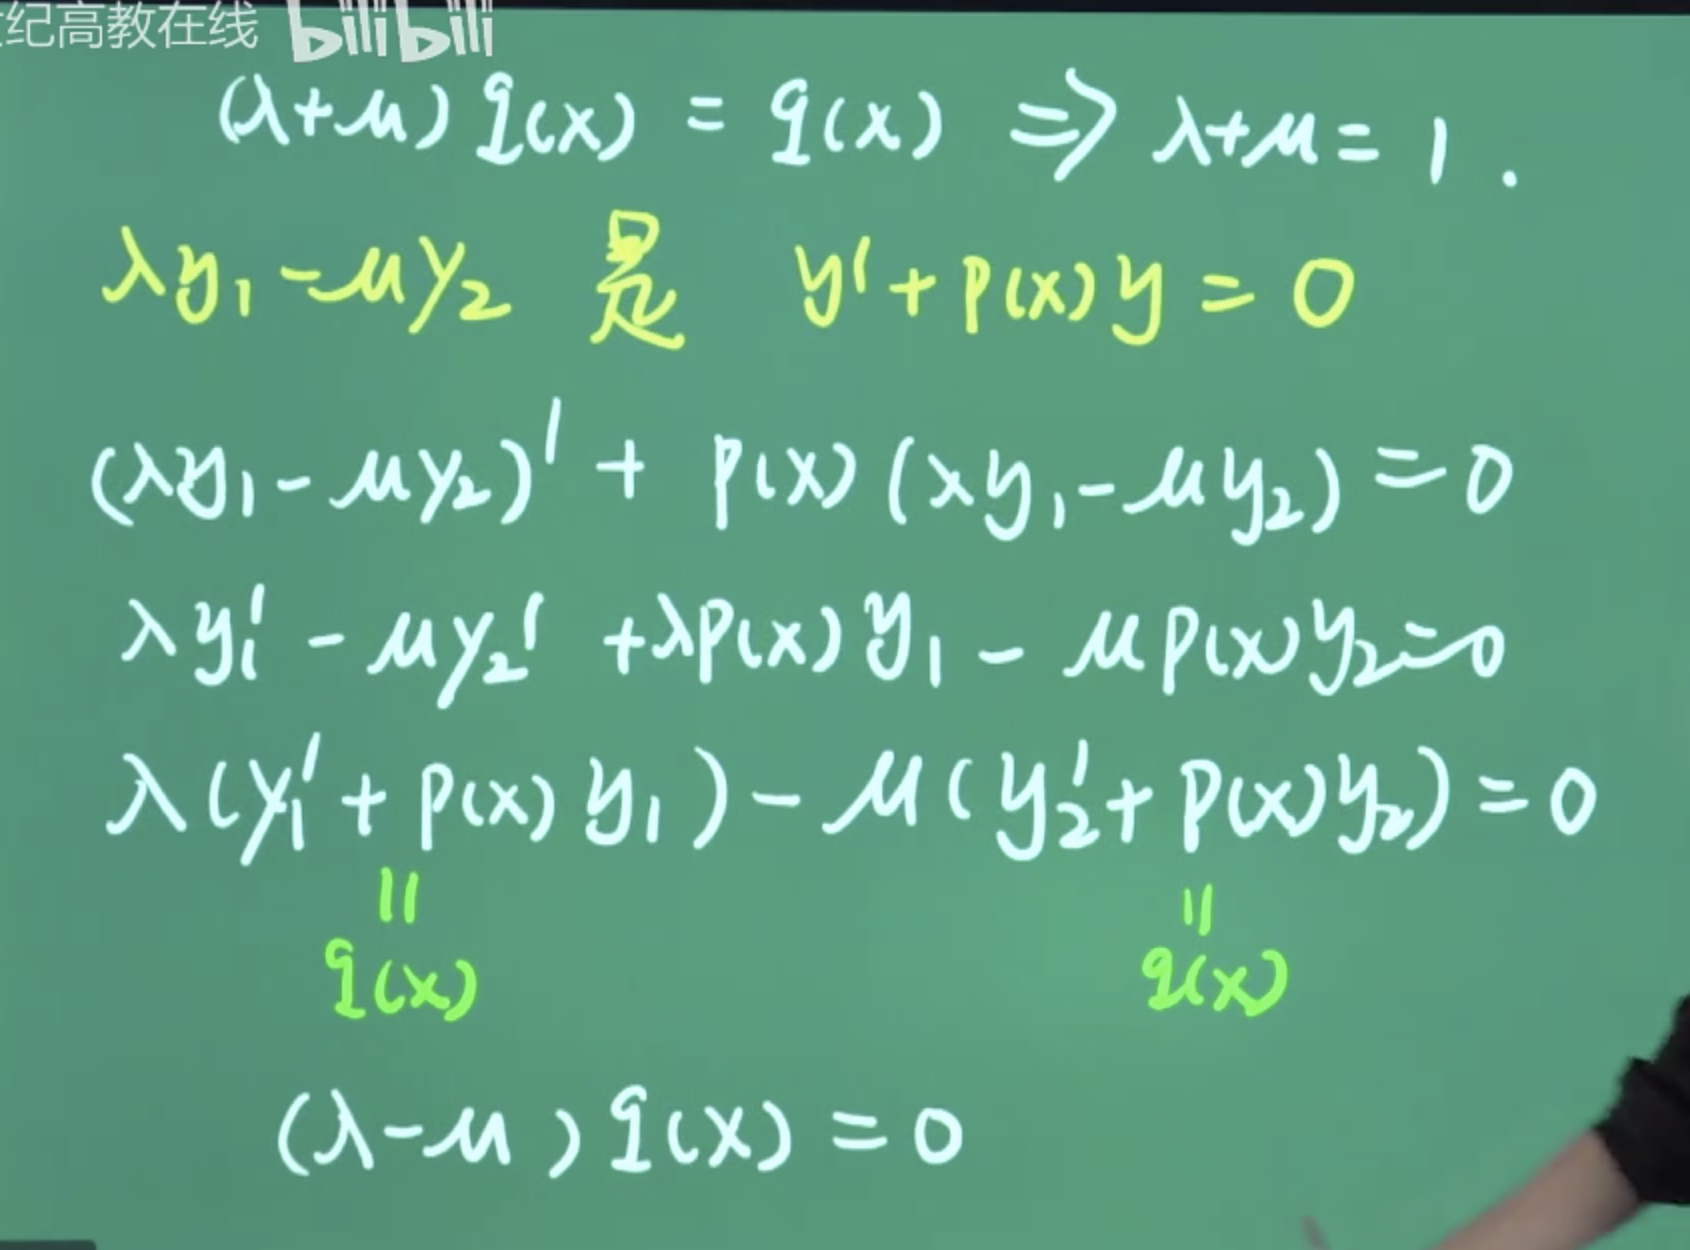 世纪高教在线 bilibili
(λ+μ) q(x) = q(x) ⇒ λ+μ = 1 .
λy₁ - μy₂ 是 y' + p(x) y = 0
(λy₁ - μy₂)' + p(x) (xy₁ - μy₂) = 0
λy₁' - μy₂' + λp(x) y₁ - μp(x)y₂ = 0
λ(y₁' + p(x) y₁) - μ(y₂' + p(x)y₂) = 0
|| ||
q(x) q(x)
(λ-μ) q(x) = 0